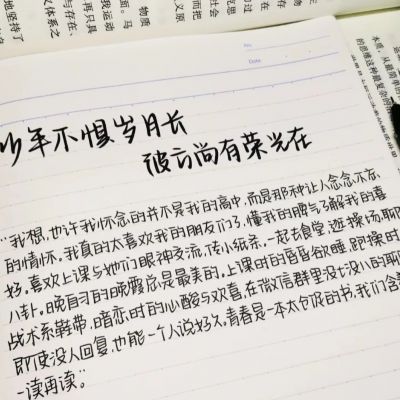 No.
Date
少年不惧岁月长
彼方尚有荣光在
"我想,也许我怀念的并不是我的高中,而是那种让人念念不忘
的情怀。我真的太喜欢我的朋友们了,懂我的脾气了解我的喜
好。喜欢上课与她们眼神交流,传小纸条,一起去食堂,逛操场,聊
八卦。晚自习的晚霞总是最美的,上课时的昏昏欲睡,跑操时
战术系鞋带,暗恋时的心酸与欢喜,在微信群里没七没八的聊
即使没人回复,也能一个人说好久。青春是一本太仓促的书,我们含
一读再读。"